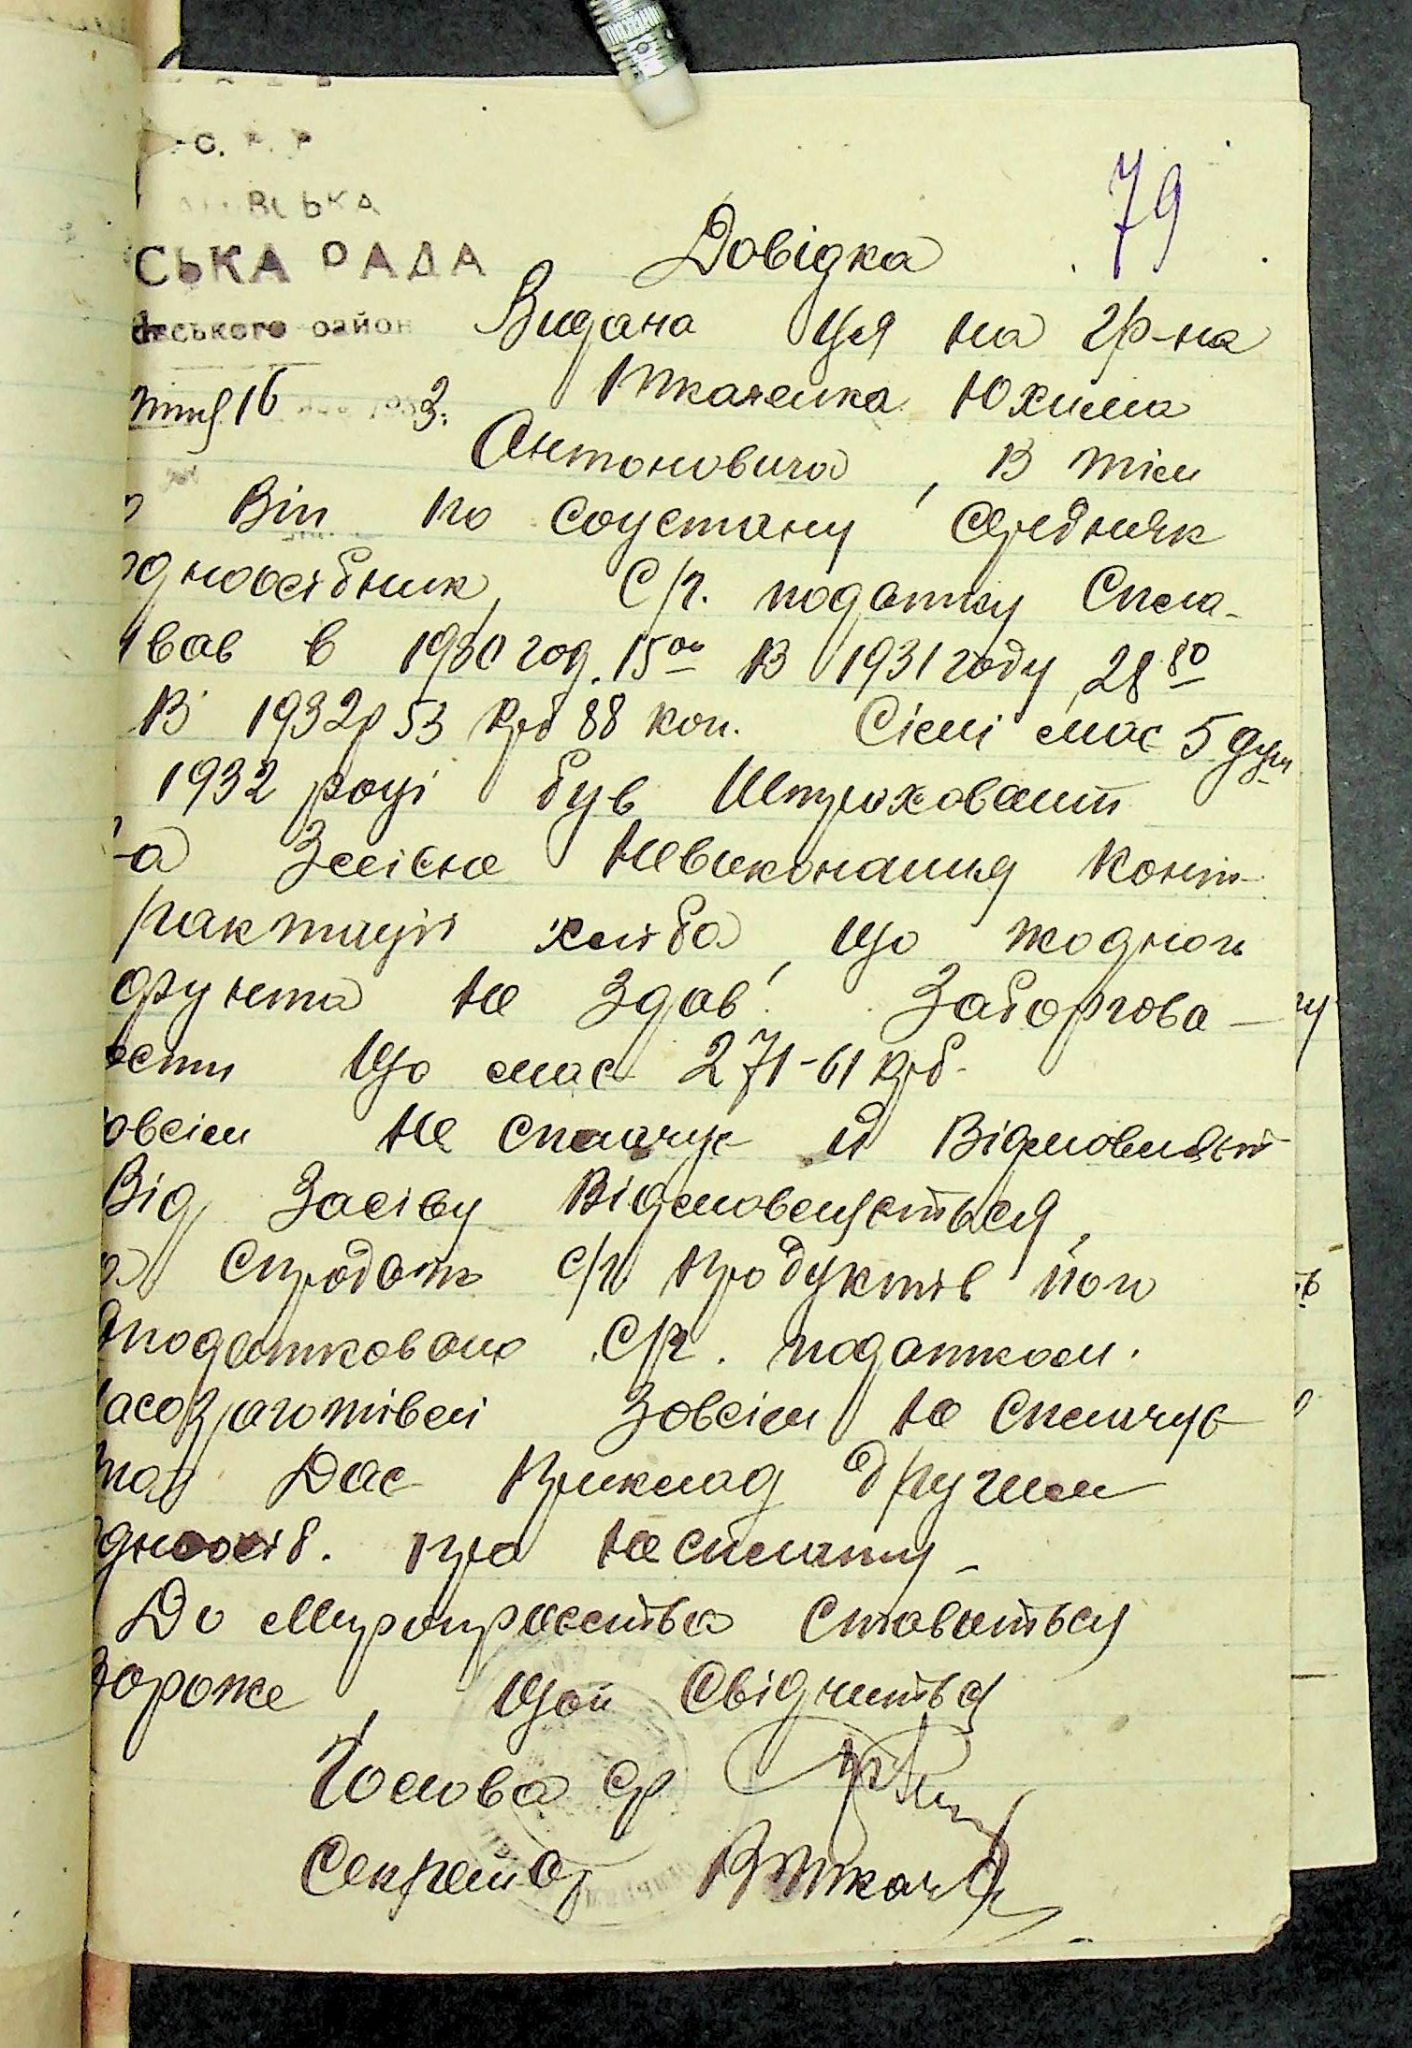 С. Р. Р
ВСЬКА
СЬКА РАДА
ського район
79
Довідка
Видана Ця на гр-на
16 3.
Ткаченка Юхима
Антоновича, В тім
о Він по соцстану середняк
одноосібник, С/г. податку Спла-
чвав в 1930 год. 15 00 В 1931 году 28 80
В 1932 р 53 крб 88 коп. Сімі має 5 душ
1932 році був Штрохованит
-а Злісне Невиконання конт-
рактації хліба, що жодного
фунта не Здав! Заборгова-
ости що має 271-61 крб.
овсім не сплачує й Відмовляєт
Від Засіву Відмовляється,
а Спродаж с/г продуктів його
Оподатковано С/г. податком.
асозаготівлі Зовсім не сплачує
Дає приклад другим
дноосіб. про несплату-
До Мироприємства ставиться
вороже, Щой Свідчиться
Голова Ср
Секретар